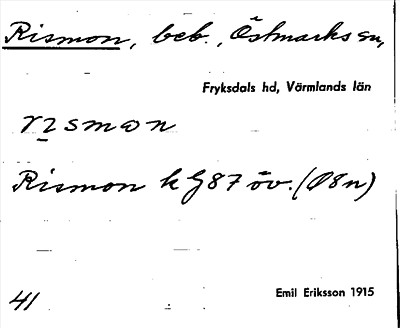 Rismon, beb., Östmarks sn,
Fryksdals hd, Värmlands län
Rismon k G87 öv. (Ø8n)
41
Emil Eriksson 1915